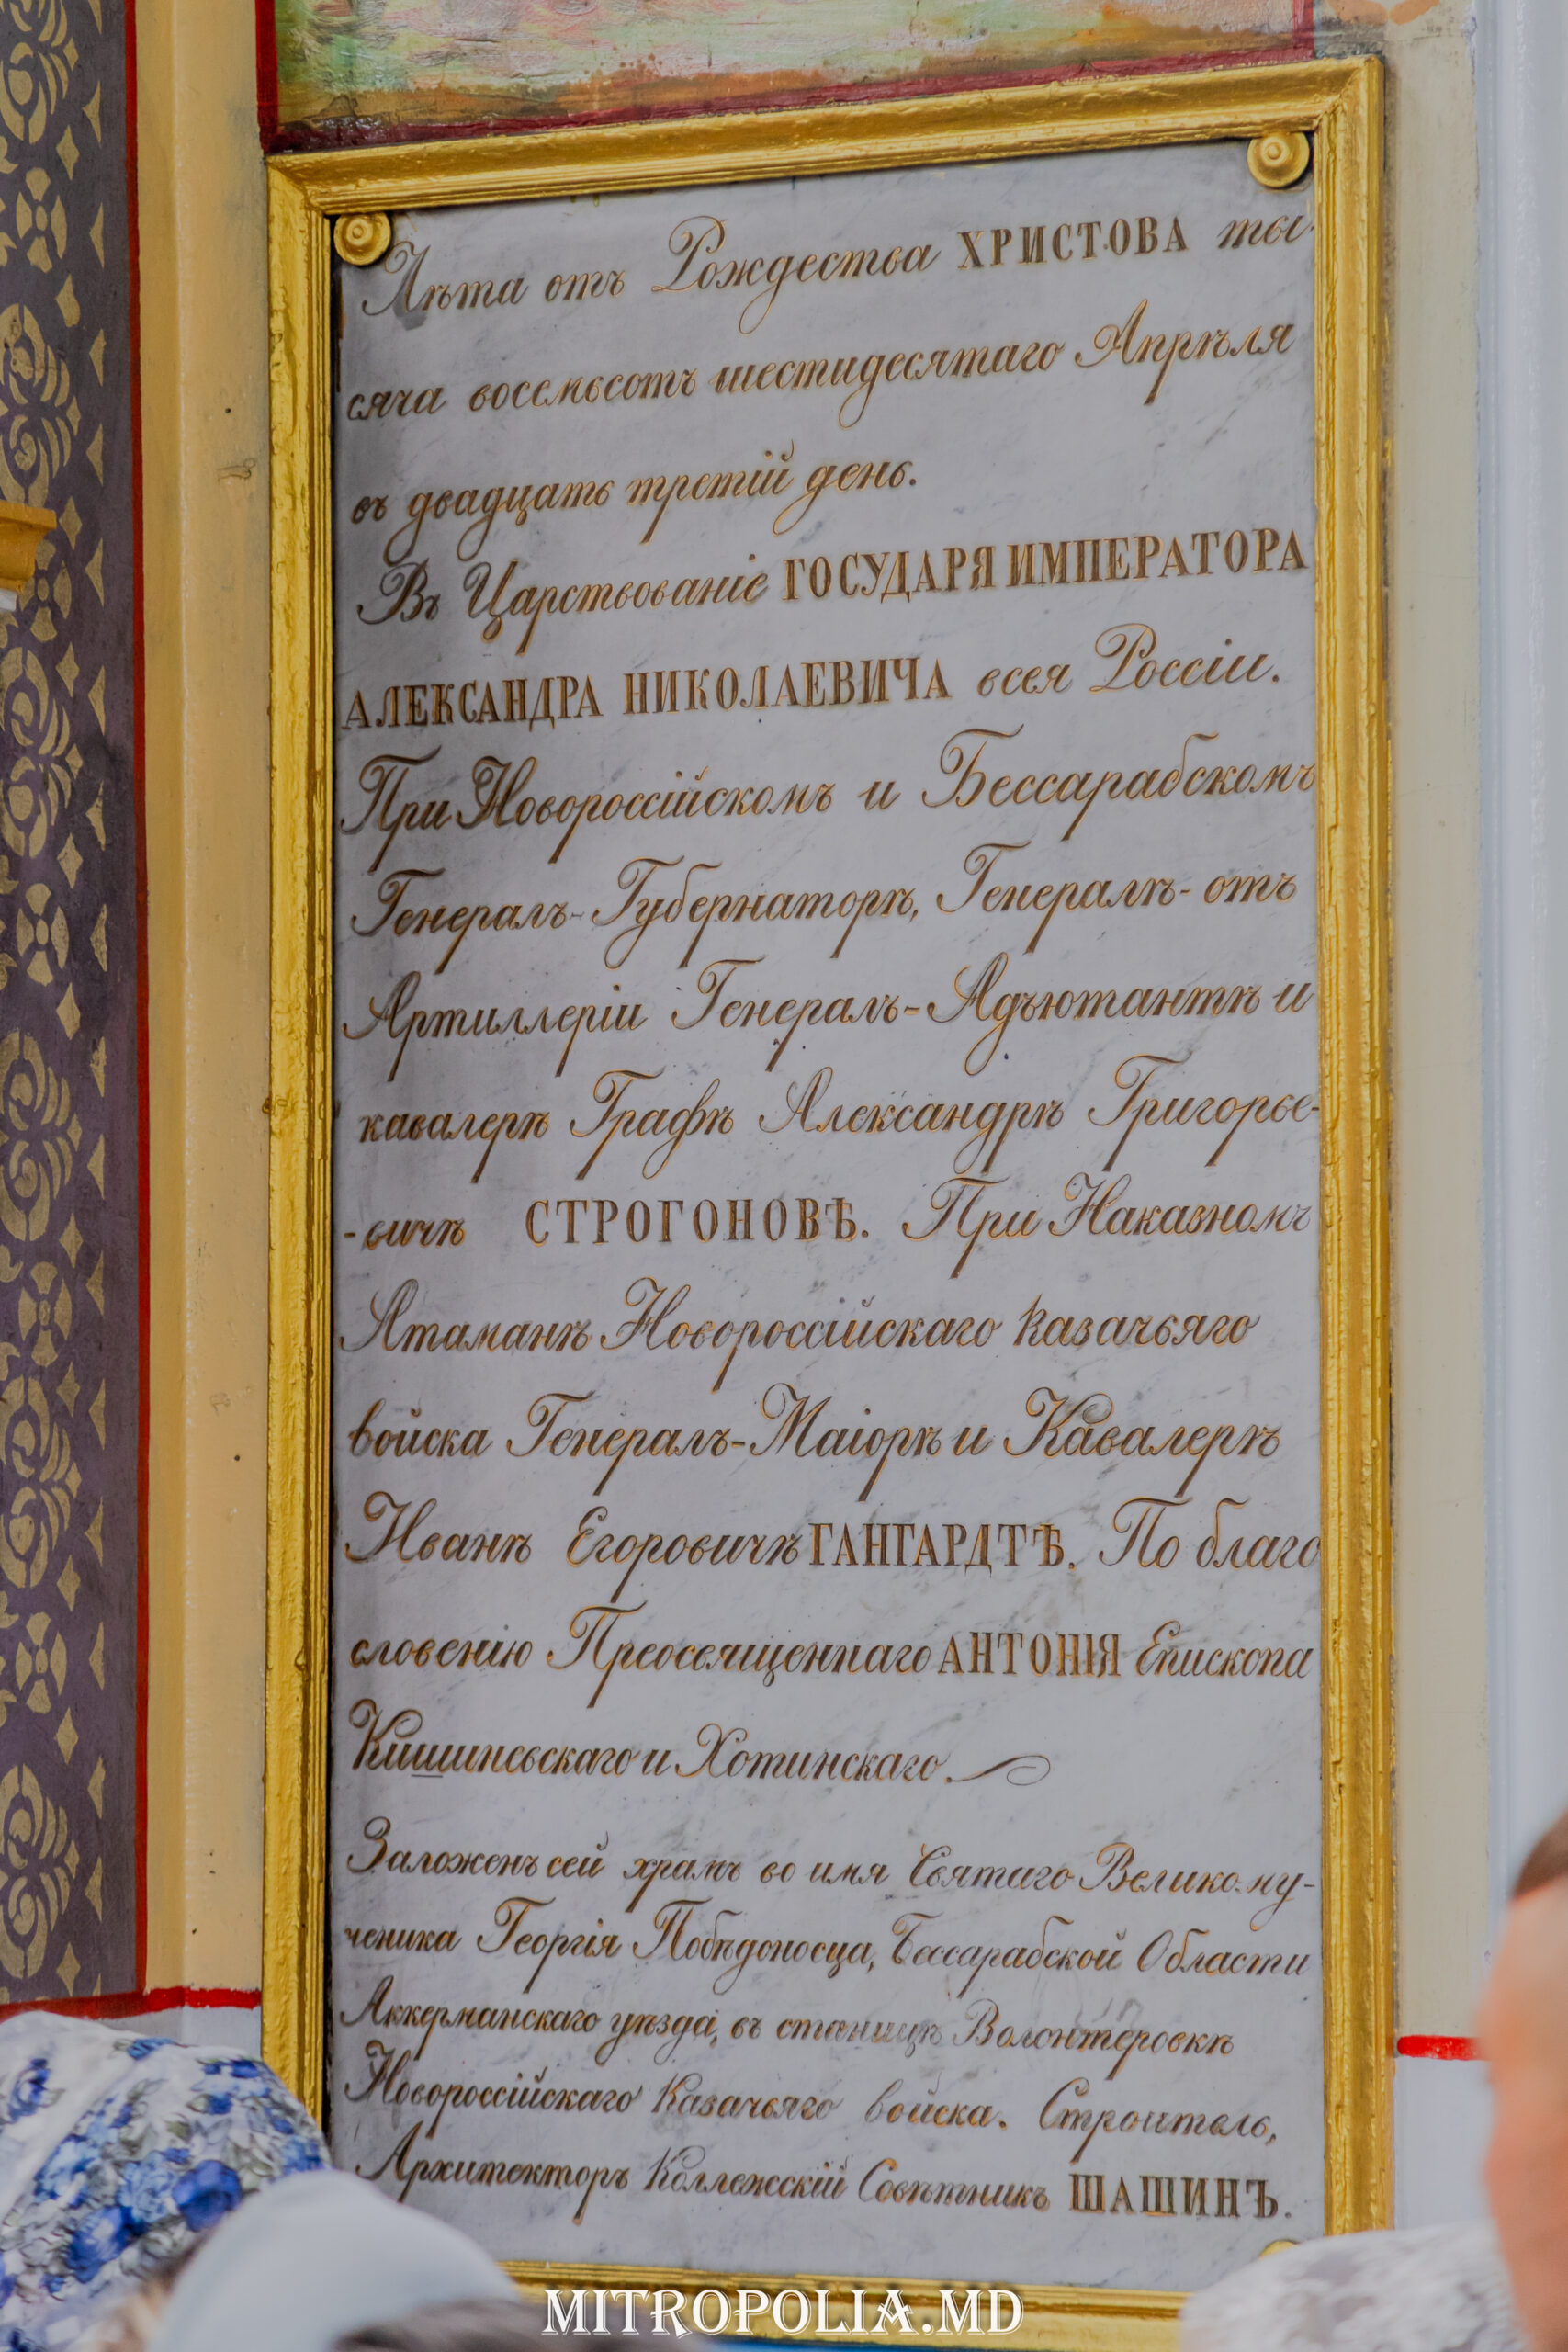 Лѣта отъ Рождества ХРИСТОВА ты-
сяча восемьсотъ шестидесятаго Апрѣля
въ двадцать третій день.
Въ Царствованіе ГОСУДАРЯ ИМПЕРАТОРА
АЛЕКСАНДРА НИКОЛАЕВИЧА всея Россіи.
При Новороссійскомъ и Бессарабскомъ
Генералъ-Губернаторѣ, Генералѣ-отъ
Артиллеріи Генералъ-Адъютантѣ и
кавалерѣ Графѣ Александрѣ Григорье-
-вичѣ СТРОГОНОВѢ. При Наказномъ
Атаманѣ Новороссійскаго казачьяго
войска Генералъ-Маіорѣ и Кавалерѣ
Иванѣ Егоровичѣ ГАНГАРДТѢ. По благо
словенію Преосвященнаго АНТОНІЯ Епископа
Кишиневскаго и Хотинскаго.
Заложенъ сей храмъ во имя Святаго Великому-
ченика Георгія Побѣдоносца, Бессарабской Области
Аккерманскаго уѣзда, въ станицѣ Волонтеровкѣ
Новороссійскаго Казачьяго войска. Строитель,
Архитекторъ Коллежскій Совѣтникъ ШАШИНЪ.
MITROPOLIA.MD